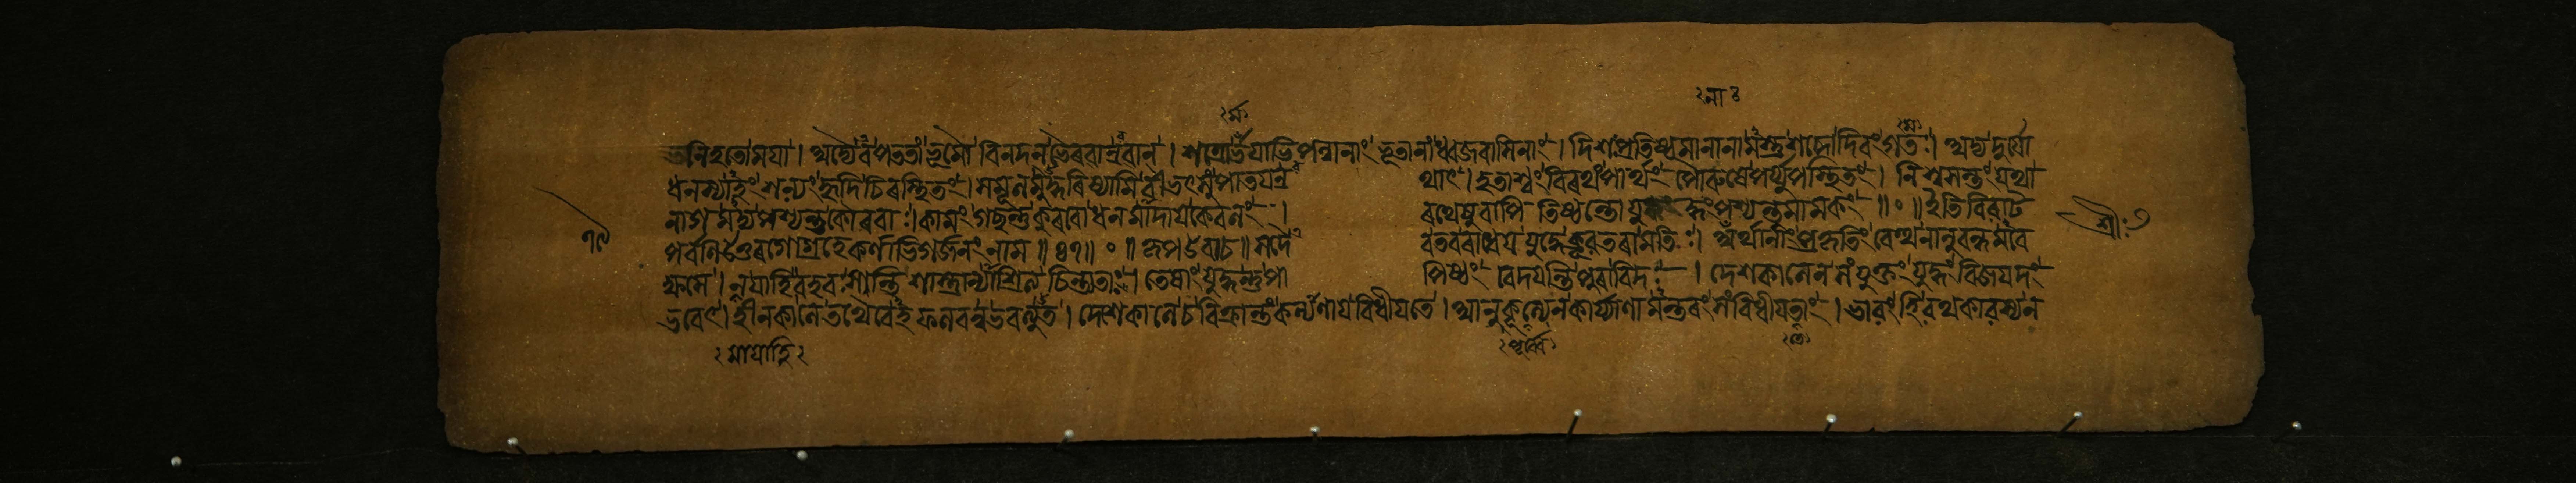 র্ম্ম
না
ভনিহতো ময়া। অদ্যৈব পততাং ভূমৌ বিনদন্ ভৈৰবান্ৰবান্। শত্ৰোৰ্ময়াভিপন্নানাং ভূতানাং ধ্বজবাসিনাং। দিশঃ প্ৰতিষ্ঠমানানামস্তু শব্দো দিবং গতঃ। অদ্য দুৰ্য্যো
ধনস্যাহং শল্যং হৃদি চিৰস্থিতং। সমূলমুদ্ধৰিষ্যামি বীভৎসুং পাতয়ন্ৰথাৎ। হতাশ্বং বিৰথং পাৰ্থং পৌৰুষে পৰ্য্যুপস্থিতং। নিশ্বসন্তং যথা
নাগমদ্য পশ্যন্তু কৌৰবাঃ। কামং গচ্ছন্তু কুৰবো ধনমাদায় কেবলং। ৰথেষু বাপি তিষ্ঠন্তো যুদ্ধং পশ্যন্তু মামকং॥০॥ ইতি বিৰাট
পৰ্বণি উত্তৰগোগ্ৰহে কৰ্ণাভিগৰ্জনং নাম॥৪৭॥০॥ কৃপ উবাচ॥ সদৈবতব ৰাধেয় যুদ্ধে ক্ৰূৰতৰা মতিঃ। অৰ্থানাং প্ৰকৃতিং বেত্থ নানুবন্ধমবে
ক্ষসে। নয়া হি বহবঃ সন্তি শাস্ত্ৰাণ্যাশ্ৰিত্য চিন্তিতাঃ। তেষাং যুদ্ধন্তু পাপিষ্ঠং বেদয়ন্তি পুৰাবিদঃ। দেশকালেন সংযুক্তং যুদ্ধং বিজয়দং
ভবেৎ। হীনকালে তথৈবেহ ফলবন্ন ভবত্যুত। দেশে কালে চ বিক্ৰান্তং কল্যাণায় বিধীয়তে। আনুকূল্যেন কাৰ্য্যাণামন্তৰং সংবিধীয়তাং। ভাৰং হি ৰথকাৰস্য ন
শ্ৰীঃ